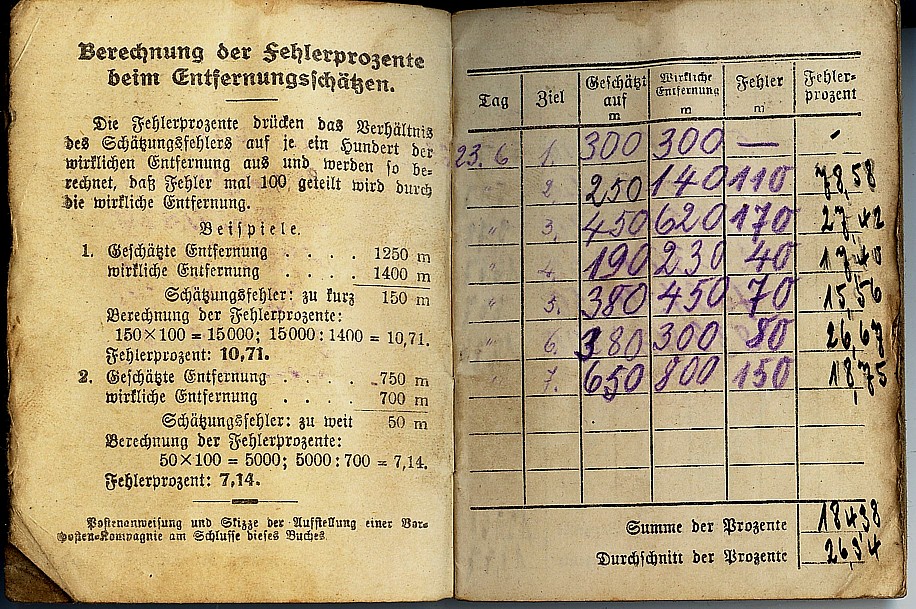 Berechnung der Fehlerprozente
beim Entfernungsschätzen.
Die Fehlerprozente drücken das Verhältnis
des Schätzungsfehlers auf je ein Hundert der
wirklichen Entfernung aus und werden so be-
rechnet, daß Fehler mal 100 geteilt wird durch
die wirkliche Entfernung.
Beispiele.
1. Geschätzte Entfernung . . . . 1250 m
wirkliche Entfernung . . . . 1400 m
Schätzungsfehler: zu kurz 150 m
Berechnung der Fehlerprozente:
150×100 = 15000; 15000 : 1400 = 10,71.
Fehlerprozent: 10,71.
2. Geschätzte Entfernung . . . . 750 m
wirkliche Entfernung . . . . 700 m
Schätzungsfehler: zu weit 50 m
Berechnung der Fehlerprozente:
50×100 = 5000; 5000 : 700 = 7,14.
Fehlerprozent: 7,14.
Postenanweisung und Skizze der Aufstellung einer Vor-
posten-Kompagnie am Schlusse dieses Buches
Tag Ziel Geschätzt auf m Wirkliche Entfernung m Fehler m Fehler-prozent
23. 6 1. 300 300 — -
" 2. 250 140 110 78,58
" 3. 450 620 170 27,42
" 4. 190 230 40 17,40
" 5. 380 450 70 15,56
" 6. 380 300 80 26,67
" 7. 650 800 150 18,75
Summe der Prozente 184,38
Durchschnitt der Prozente 26,34